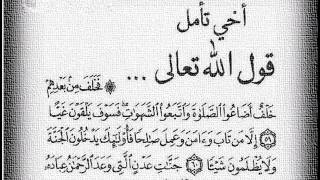 أخي تأمل
قول الله تعالى ...
۞ فَخَلَفَ مِنۢ بَعْدِهِمْ
خَلْفٌ أَضَاعُوا۟ ٱلصَّلَوٰةَ وَٱتَّبَعُوا۟ ٱلشَّهَوَٰتِ ۖ فَسَوْفَ يَلْقَوْنَ غَيًّا
٥٩ إِلَّا مَن تَابَ وَءَامَنَ وَعَمِلَ صَٰلِحًا فَأُو۟لَٰٓئِكَ يَدْخُلُونَ ٱلْجَنَّةَ
وَلَا يُظْلَمُونَ شَيْـًٔا ٦٠ جَنَّٰتِ عَدْنٍ ٱلَّتِى وَعَدَ ٱلرَّحْمَٰنُ عِبَادَهُۥ